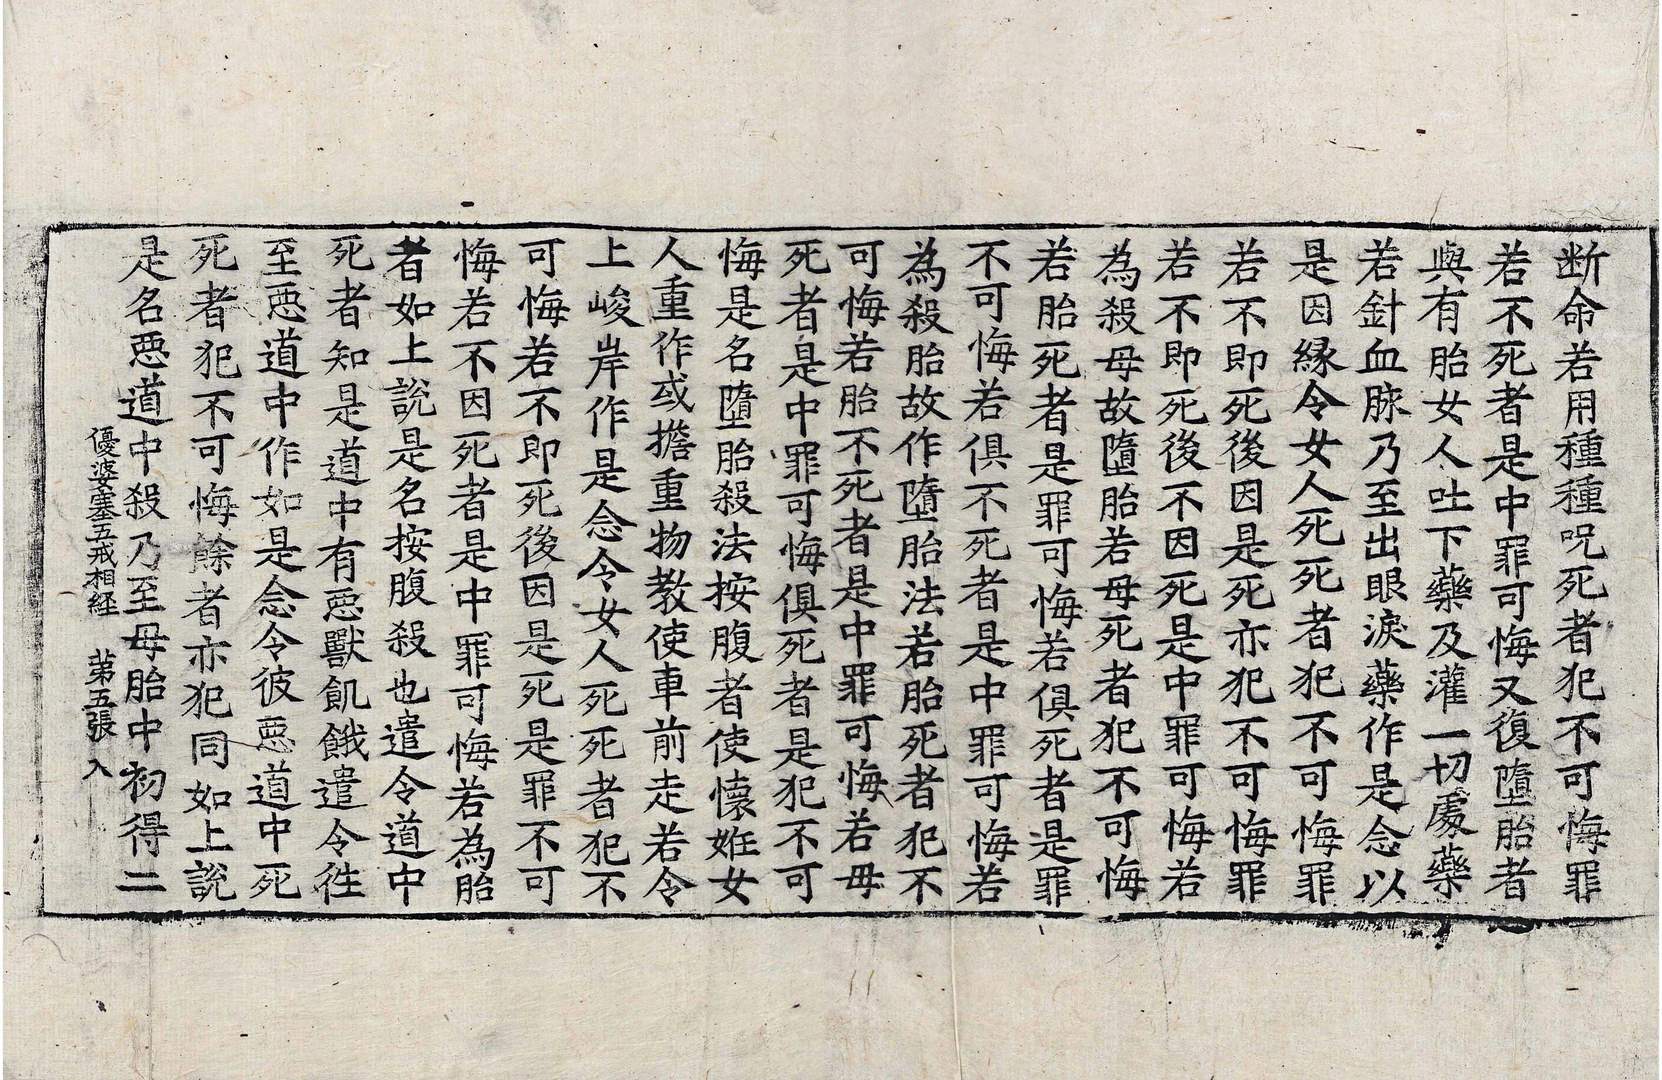 断命若用種種呪死者犯不可悔罪
若不死者是中罪可悔又復墮胎者
與有胎女人吐下藥及灌一切處藥
若針血脉乃至出眼淚藥作是念以
是因縁令女人死死者犯不可悔罪
若不即死後因是死亦犯不可悔罪
若不即死後不因死是中罪可悔若
為殺母故墮胎若母死者犯不可悔
若胎死者是罪可悔若俱死者是罪
不可悔若俱不死者是中罪可悔若
為殺胎故作墮胎法若胎死者犯不
可悔若胎不死者是中罪可悔若母
死者是中罪可悔俱死者是犯不可
悔是名墮胎殺法按腹者使懷妊女
人重作或擔重物教使車前走若令
上峻岸作是念令女人死死者犯不
可悔若不即死後因是死是罪不可
悔若不因死者是中罪可悔若為胎
者如上說是名按腹殺也遣令道中
死者知是道中有惡獸飢餓遣令徃
至惡道中作如是念令彼惡道中死
死者犯不可悔餘者亦犯同如上說
是名惡道中殺乃至母胎中初得二
優婆塞五戒相経　第五張　入